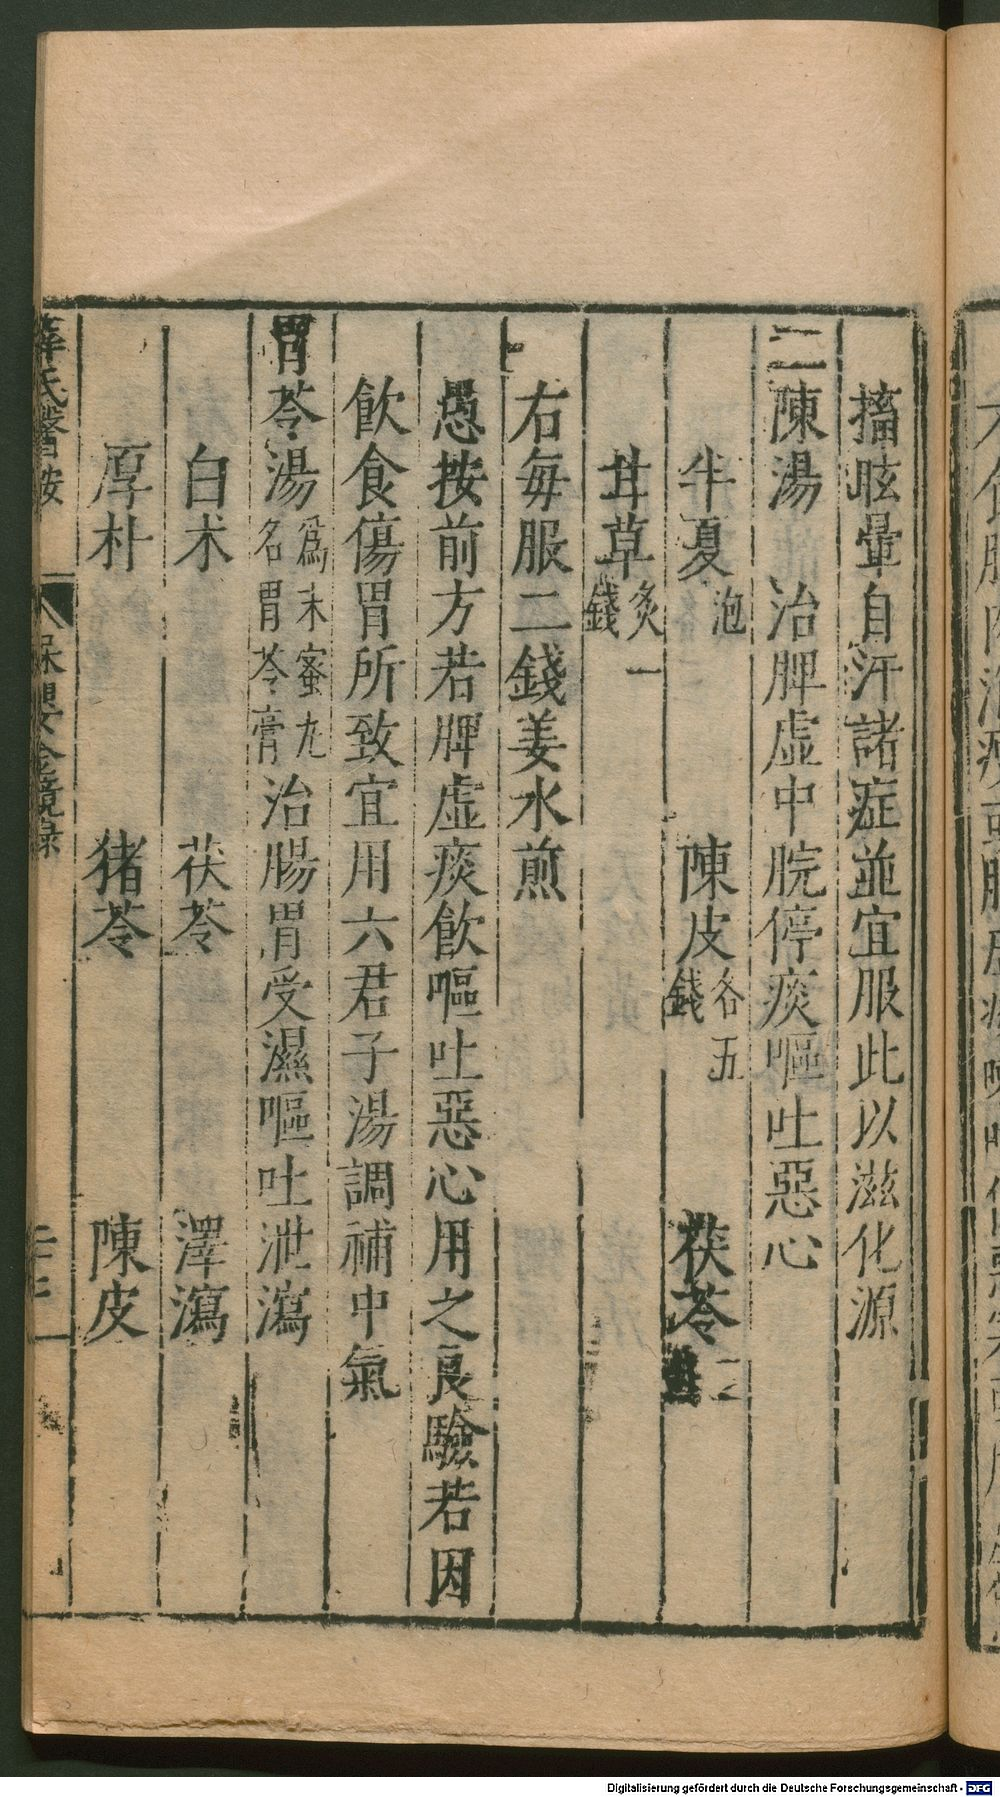 搐眩暈自汗諸症並宜服此以滋化源
二陳湯 治脾虛中脘停痰嘔吐惡心
半夏泡 陳皮各五錢 茯苓二
甘草炙一錢
右每服二錢姜水煎
愚按前方若脾虛痰飲嘔吐惡心用之良驗若因
飲食傷胃所致宜用六君子湯調補中氣
胃苓湯爲末蜜丸名胃苓膏治腸胃受濕嘔吐泄瀉
白朮 茯苓 澤瀉
厚朴 猪苓 陳皮
薛氏醫按 保嬰金鏡錄
Digitalisierung gefördert durch die Deutsche Forschungsgemeinschaft - DFG